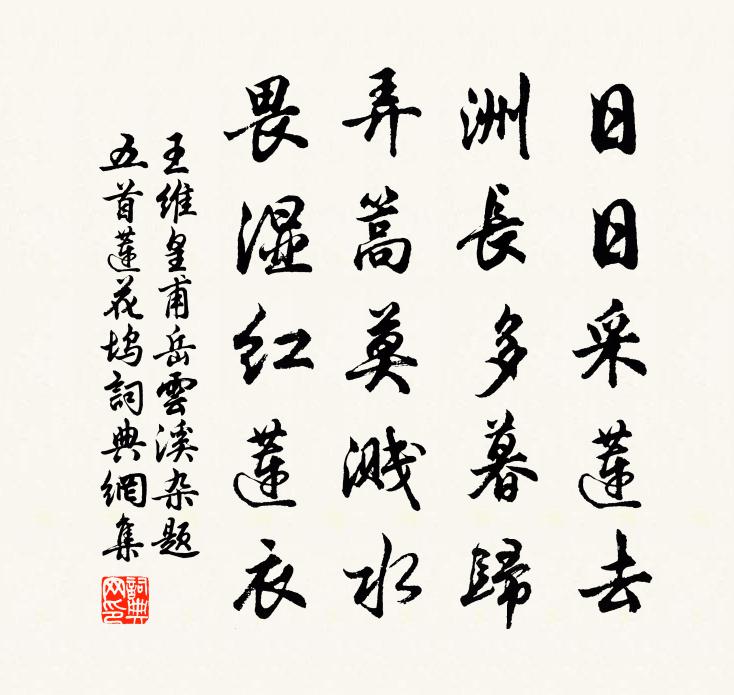 日日采蓮去
洲長多暮歸
弄篙莫濺水
畏湿紅蓮衣
王維皇甫岳雲溪杂题
五首蓮花塢詞典網集
詞典
网印